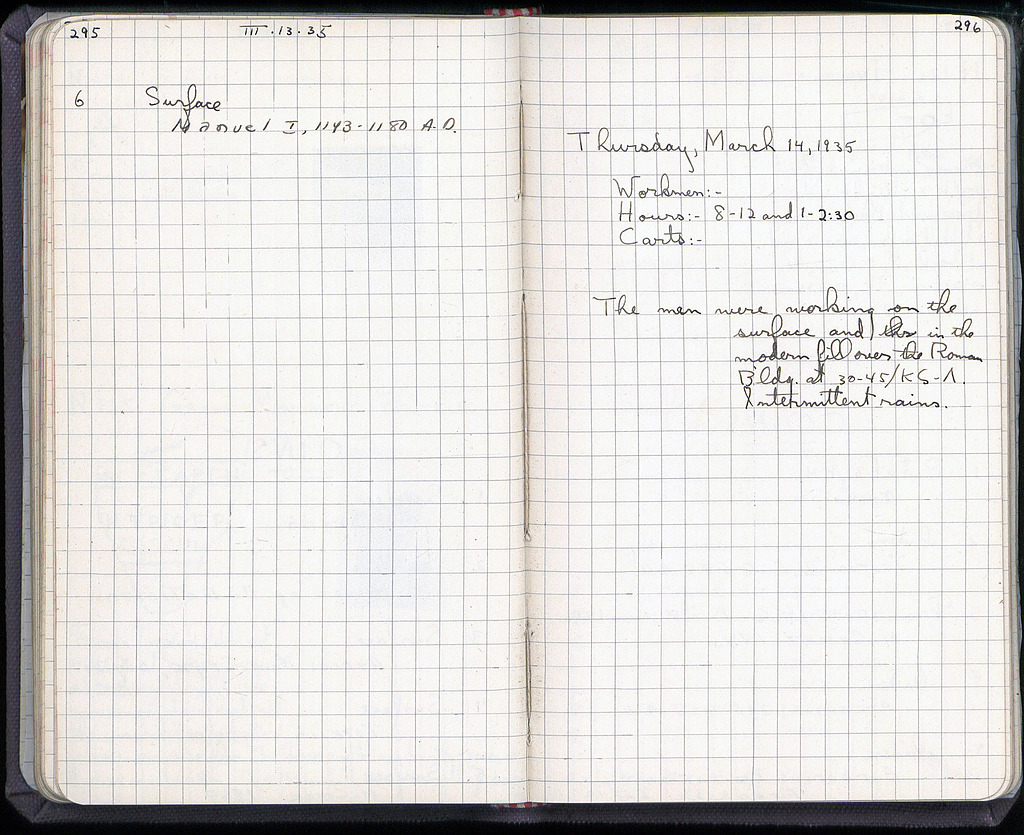 295
III.13.35
6 Surface
Manuel I, 1143-1180 A.D.
296
Thursday, March 14, 1935
Workmen:-
Hours:- 8-12 and 1-2:30
Carts:-
The men were working on the
surface and in the
modern fill over the Roman
Bldg. at 30-45/ΚS-Λ.
Intermittent rains.